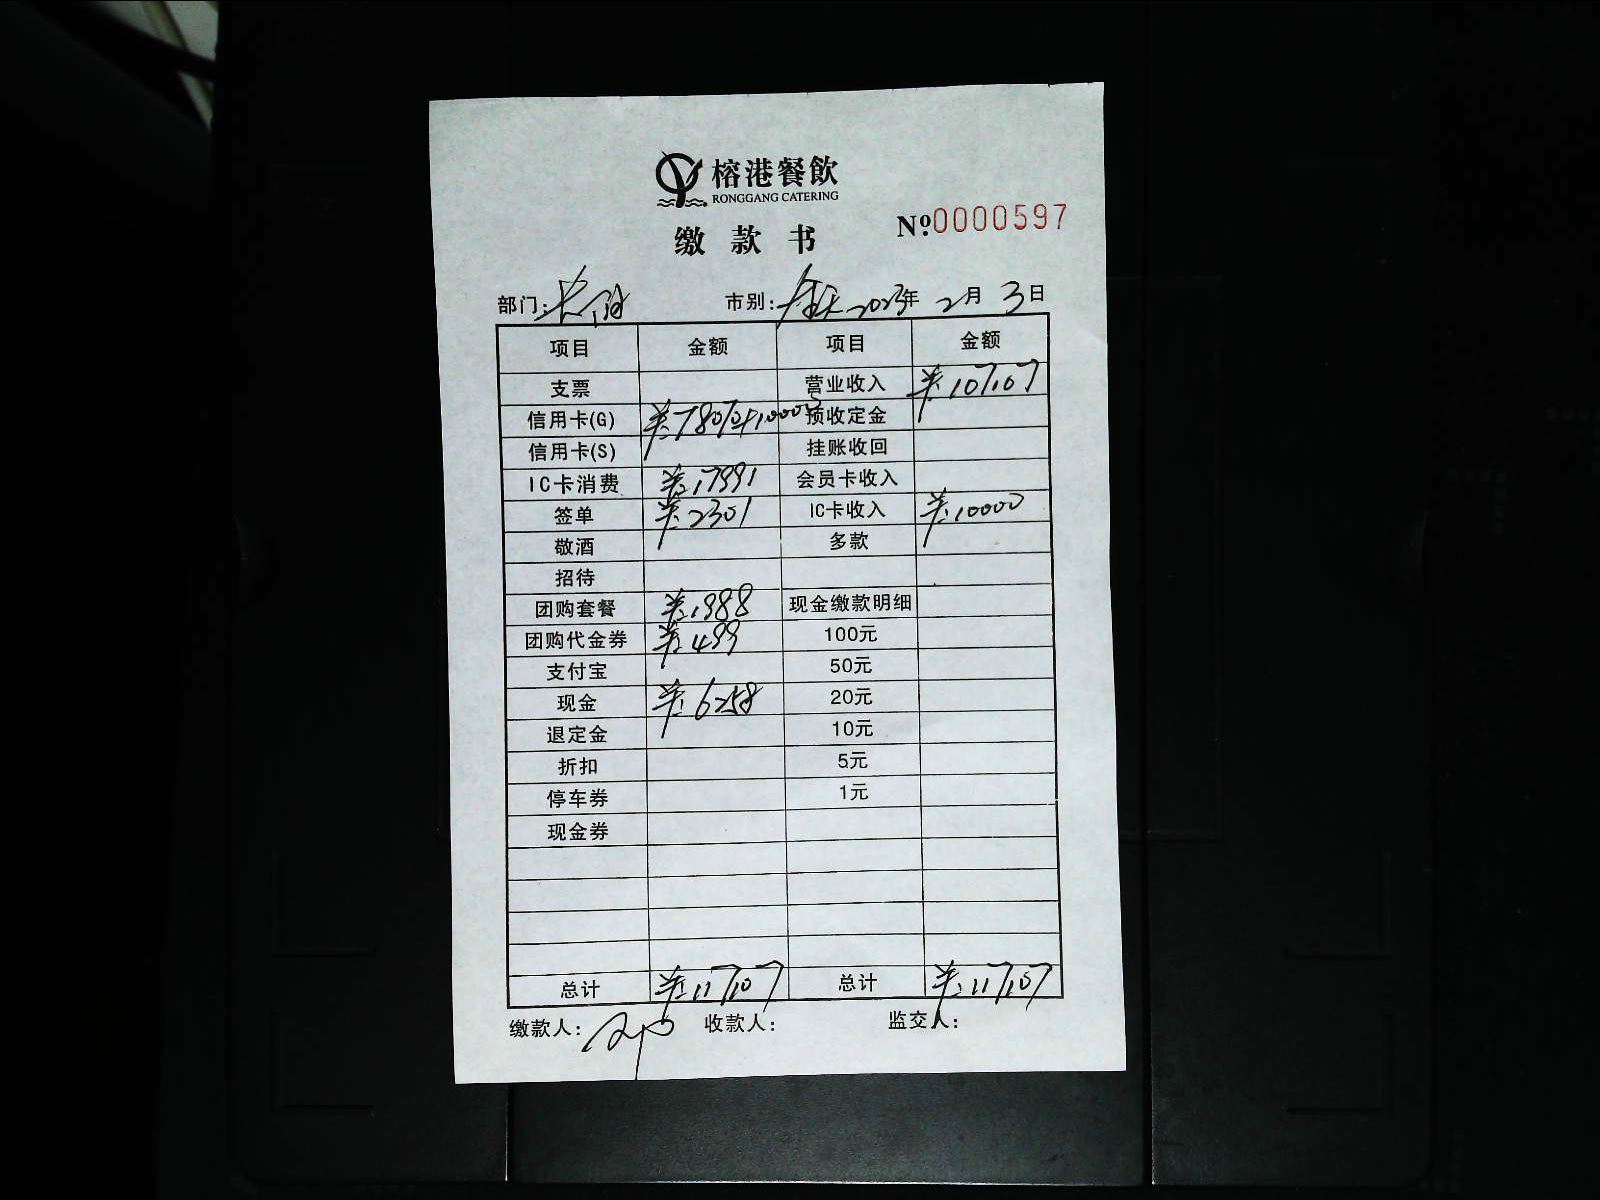 榕港餐飲
RONGGANG CATERING
缴款书
Nº 0000597
部门: 市别: 全天 2023年 2月 3日
项目 金额 项目 金额
支票 营业收入 ¥:107107
信用卡(G) ¥:78070+10000 预收定金
信用卡(S) 挂账收回
IC卡消费 ¥:17991 会员卡收入
签单 ¥:2301 IC卡收入 ¥:10000
敬酒 多款
招待
团购套餐 ¥:1988 现金缴款明细
团购代金券 ¥:499 100元
支付宝 50元
现金 ¥:6258 20元
退定金 10元
折扣 5元
停车券 1元
现金券
总计 ¥:117107 总计 ¥:117107
缴款人: 收款人: 监交人: